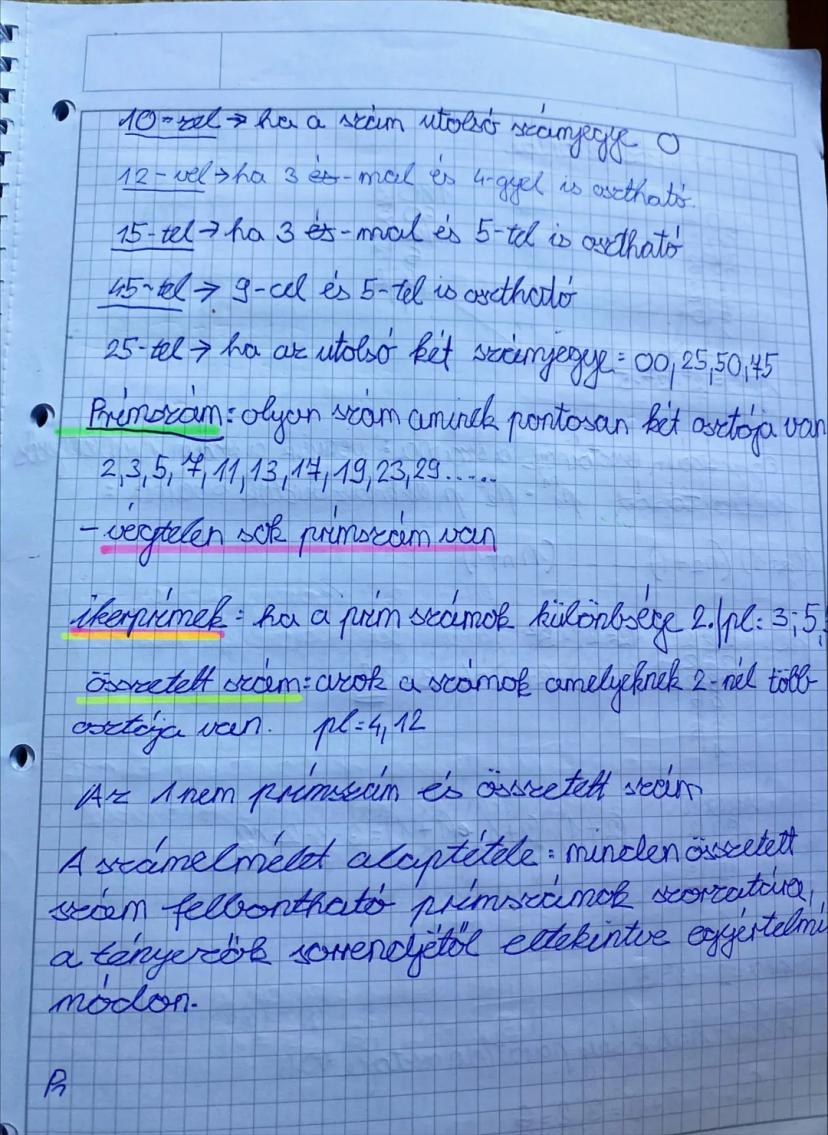 10-zel → ha a szám utolsó számjegye 0
12-vel → ha 3 és-mal és 4-gyel is osztható.
15-tel → ha 3 és-mal és 5-tel is osztható
45-tel → 9-cel és 5-tel is osztható
25-tel → ha az utolsó két számjegye = 00, 25, 50, 75
Prímszám: olyan szám aminek pontosan két osztója van
2, 3, 5, 7, 11, 13, 17, 19, 23, 29.....
- végtelen sok prímszám van
ikerprímek: ha a prím számok különbsége 2. /pl: 3; 5;
összetett szám: azok a számok amelyeknek 2-nél több
osztója van. pl: 4, 12
Az 1 nem prímszám és összetett szám
A számelmélet alaptétele: minden összetett
szám felbontható prímszámok szorzatára,
a tényezők sorrendjétől eltekintve egyértelmű
módon.
Pr